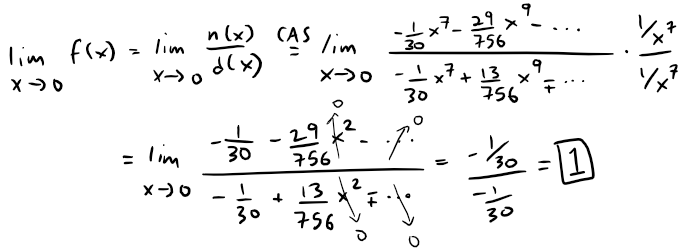 lim x→0 f(x) = lim x→0 n(x)/d(x) CAS= lim x→0 (-1/30 x^7 - 29/756 x^9 - ···)/(-1/30 x^7 + 13/756 x^9 ∓ ···) · (1/x^7)/(1/x^7)
= lim x→0 (-1/30 - 29/756 x^2 - ···)/(-1/30 + 13/756 x^2 ∓ ···) = (-1/30)/(-1/30) = 1
0 0
0 0